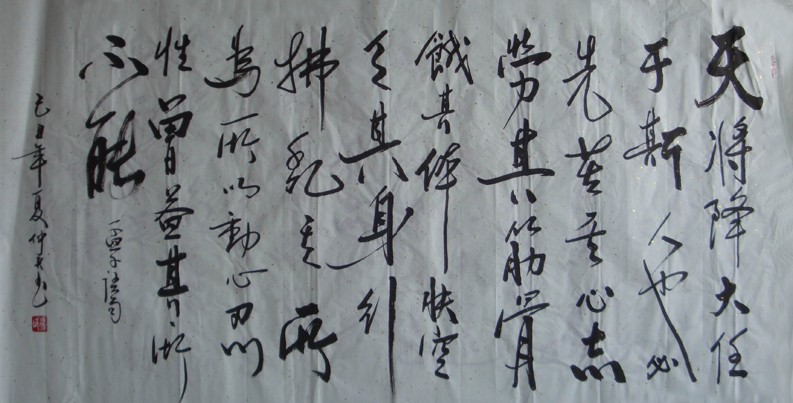 天将降大任
于斯人也必
先苦其心志
勞其筋骨
餓其体肤空
乏其身行
拂乱其所
為所以動心忍
性曾益其所
不能
孟子语句
己丑年夏仲